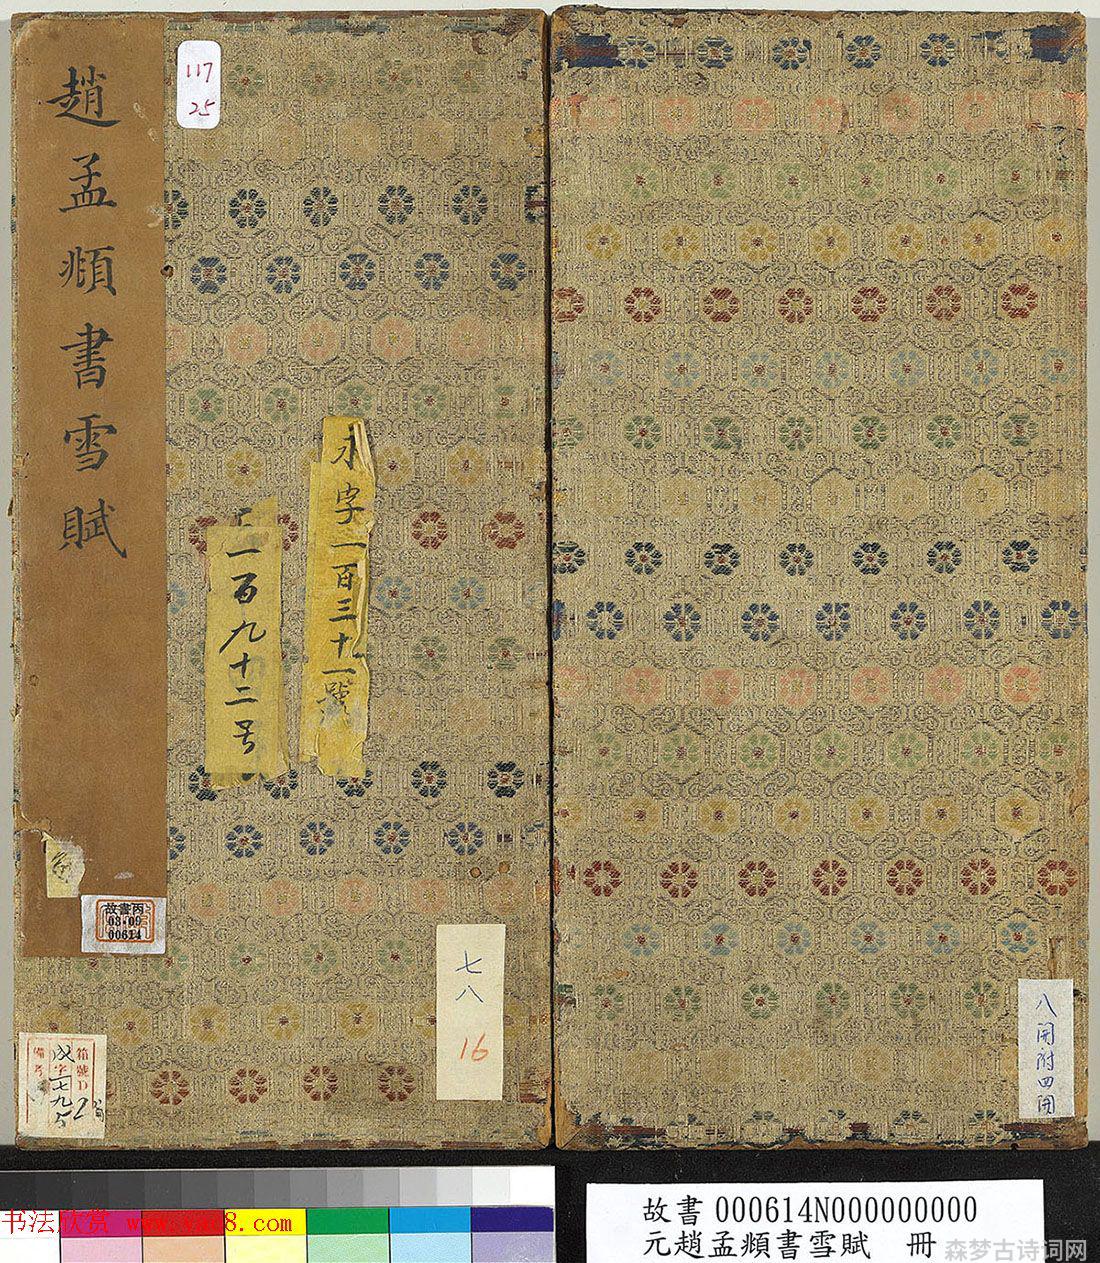 趙孟頫書雪賦
117
25
永字一百三十一號
一百九十二号
故書丙
08-09
00614
七八
16
箱號D
成字一七九号
2
備考
八開附四開
故書 000614N000000000
元趙孟頫書雪賦 冊
书法欣赏 www.yac8.com
森梦古诗词网